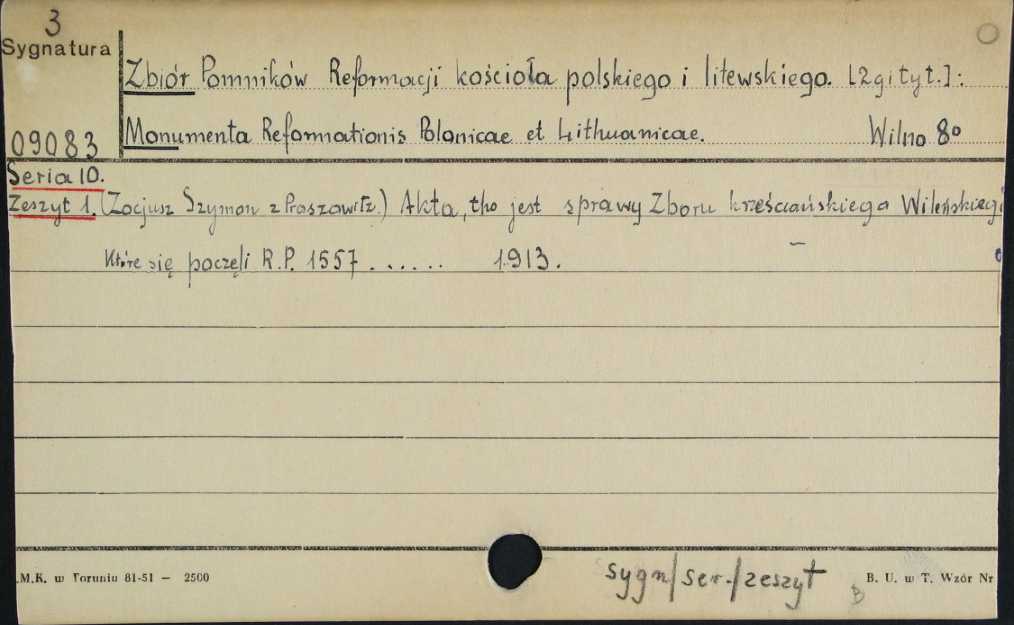 3
Sygnatura
Zbiór Pomników Reformacji kościoła polskiego i litewskiego. [2gi tyt.]:
09083 Monumenta Reformationis Polonicae et Lithuanicae. Wilno 8º
Seria 10.
Zeszyt 1. (Zacjusz Szymon z Proszowitz.) Akta, tho jest sprawy Zboru krześciańskiego Wileńskiego
Które się poczęli R.P. 1557 ...... 1913.
sygn/ser./zeszyt
.M.K. w Toruniu 81-51 — 2500 B. U. w T. Wzór Nr
B